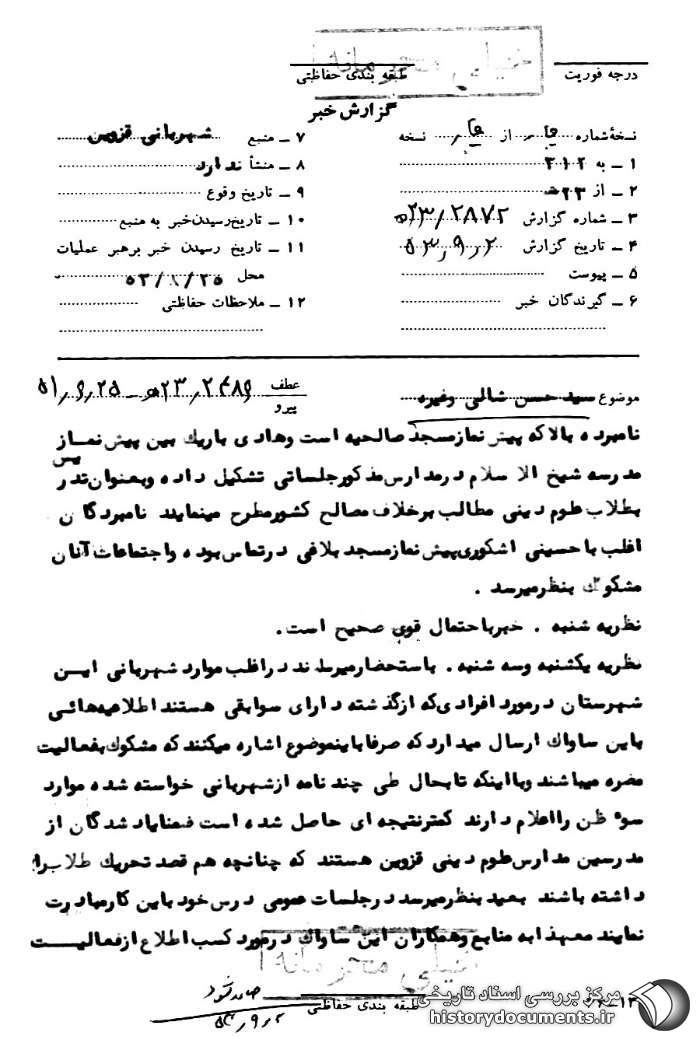 خیلی محرمانه
درجه فوریت
طبقه بندی حفاظتی
گزارش خبر
نسخهٔ شماره از نسخه
۱ ـ به ۳۱۲
۲ ـ از ۲۳ ه
۳ ـ شماره گزارش ۲۳/۲۸۷۲ ه
۴ ـ تاریخ گزارش ۵۳,۹,۲
۵ ـ پیوست
۶ ـ گیرندگان خبر
۷ ـ منبع شهربانی قزوین
۸ ـ منشأ ندارد
۹ ـ تاریخ وقوع
۱۰ ـ تاریخ رسیدن خبر به منبع
۱۱ ـ تاریخ رسیدن خبر برهبر عملیات
محل ۵۳/۸/۲۵
۱۲ ـ ملاحظات حفاظتی
موضوع سید حسن شالی وغیره
عطف
پیرو
نامبرده بالا که پیش نماز مسجد صالحیه است وهادی باریک بین پیش نماز
مدرسه شیخ الاسلام درمدارس مذکور جلساتی تشکیل داده وبعنوان تدریس
بطلاب علوم دینی مطالب برخلاف مصالح کشور مطرح مینمایند نامبردگان
اغلب با حسینی اشکوری پیش نماز مسجد بلاغی درتماس بوده واجتماعات آنان
مشکوک بنظر میرسد .
نظریه شنبه . خبر باحتمال قوی صحیح است .
نظریه یکشنبه وسه شنبه . باستحضار میرساند دراغلب موارد شهربانی ایـن
شهرستان درمورد افرادی که ازگذشته دارای سوابقی هستند اطلاعیه هائـی
باین ساواک ارسال میدارد که صرفا باینموضوع اشاره میکنند که مشکوک بفعالیت
مضره میباشند وبا اینکه تابحال طی چند نامه ازشهربانی خواسته شده موارد
سوء ظن را اعلام دارند کمتر نتیجه ای حاصل شده است ضمنا یاد شدگان از
مدرسین مدارس علوم دینی قزوین هستند که چنانچه هم قصد تحریک طلاب را
داشته باشند بعید بنظر میرسد درجلسات عمومی درس خود باین کار مبادرت
نمایند معهذا به منابع وهمکاران این ساواک درمورد کسب اطلاع ازفعالیـــت
خیلی محرمانه
طبقه بندی حفاظتی
مرکز بررسی اسناد تاریخی
historydocuments.ir